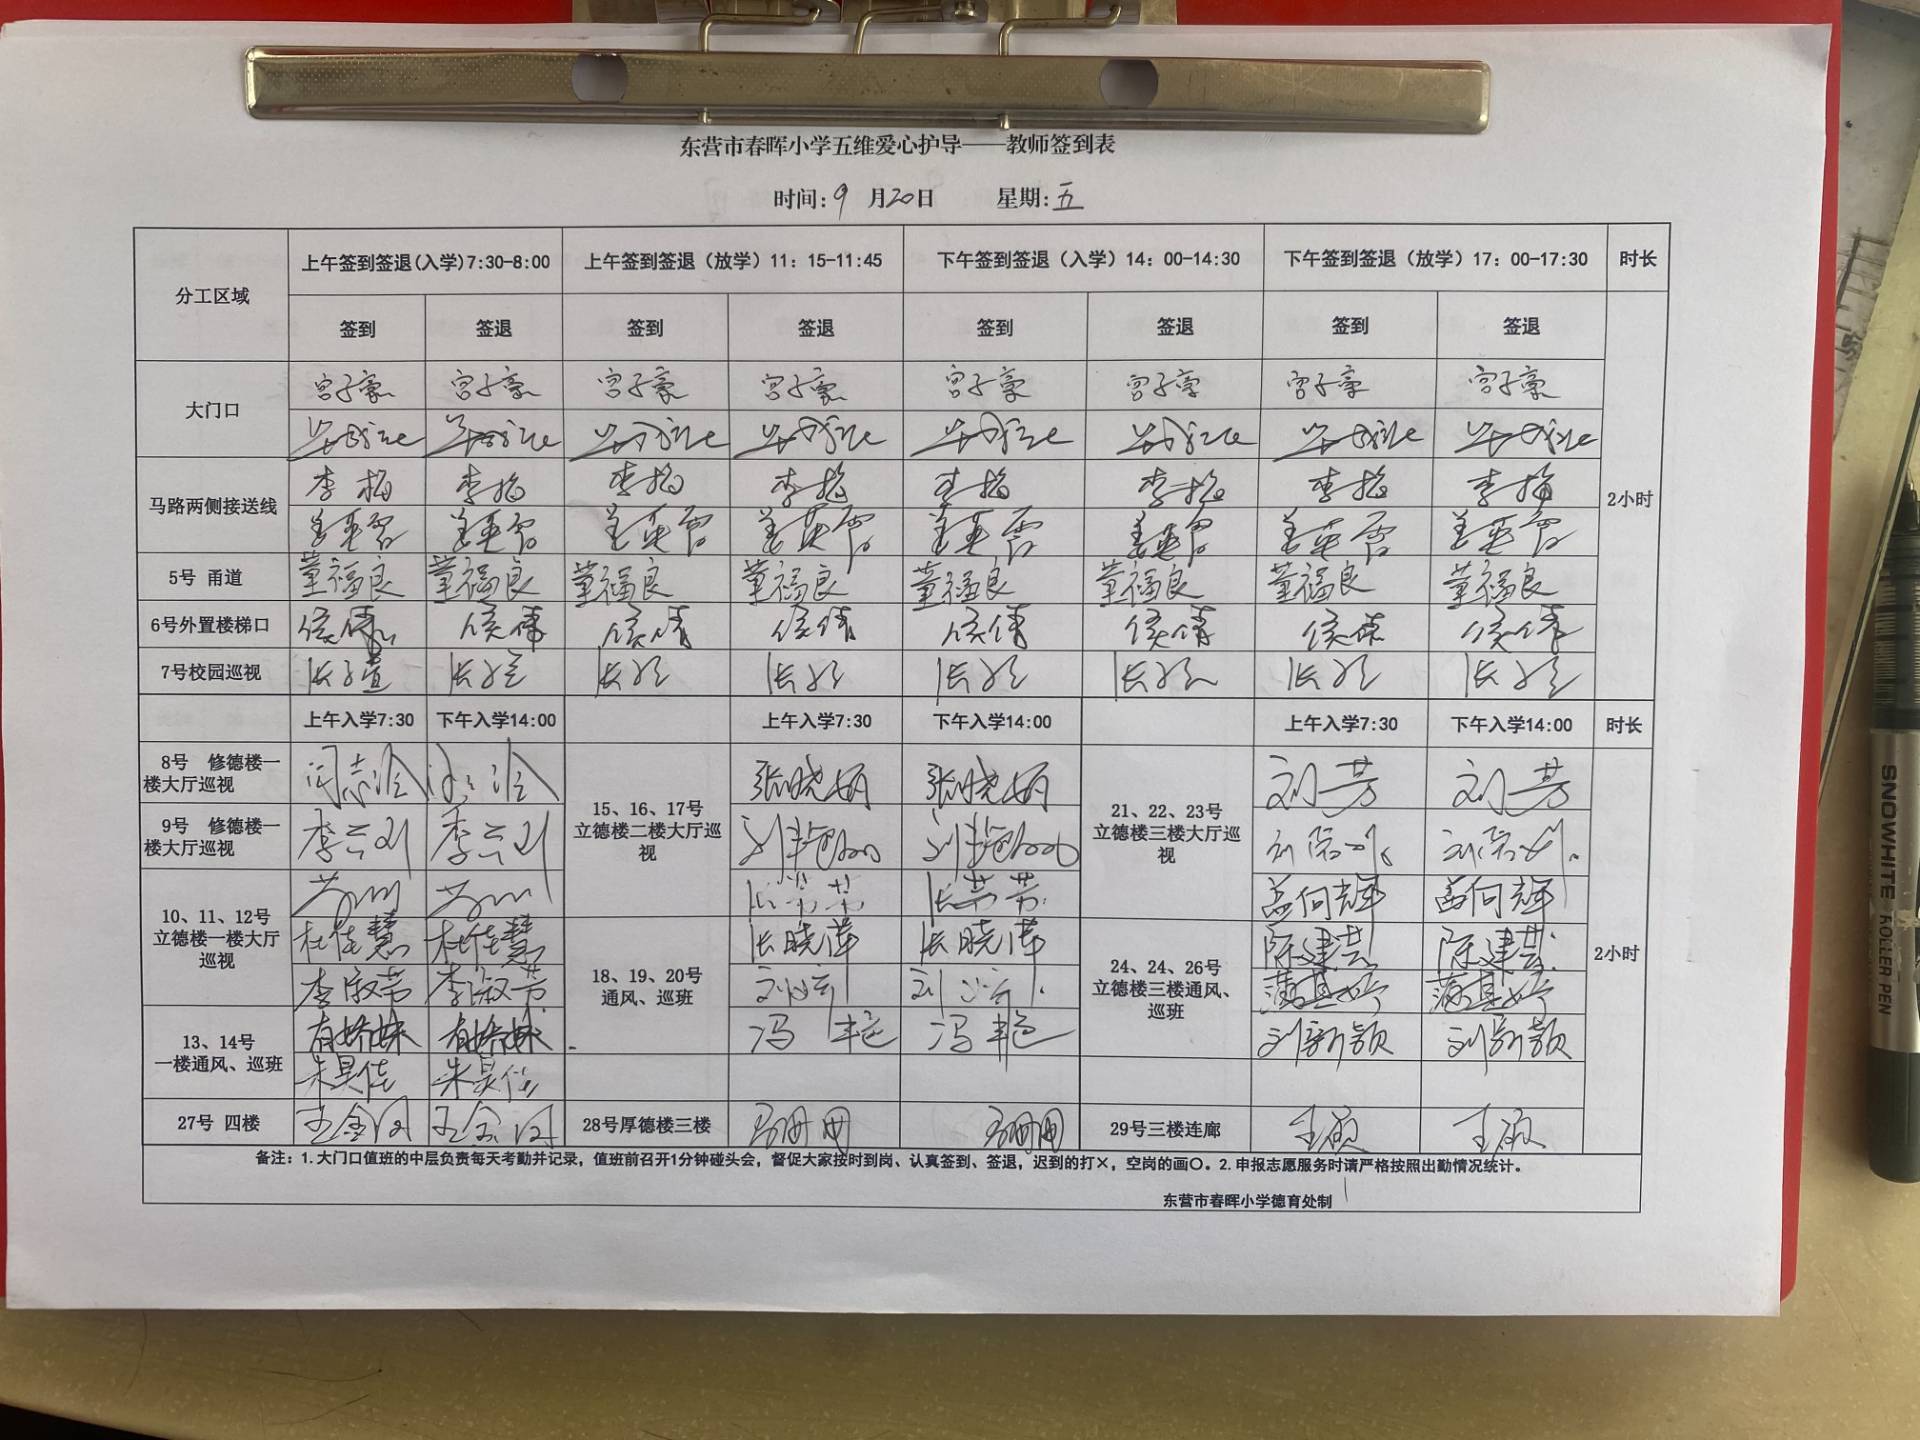 东营市春晖小学五维爱心护导——教师签到表
时间:9 月20日 星期:五
分工区域 上午签到签退(入学)7:30-8:00 上午签到签退（放学）11：15-11:45 下午签到签退（入学）14：00-14:30 下午签到签退（放学）17：00-17:30 时长
签到 签退 签到 签退 签到 签退 签到 签退
大门口 宫子豪 宫子豪 宫子豪 宫子豪 宫子豪 宫子豪 宫子豪 宫子豪
马路两侧接送线 李梅 李梅 李梅 李梅 李梅 李梅 李梅 李梅 2小时
5号 甬道 董福良 董福良 董福良 董福良 董福良 董福良 董福良 董福良
6号外置楼梯口 侯倩 侯倩 侯倩 侯倩 侯倩 侯倩 侯倩 侯倩
7号校园巡视
上午入学7:30 下午入学14:00 上午入学7:30 下午入学14:00 上午入学7:30 下午入学14:00 时长
8号 修德楼一
楼大厅巡视
9号 修德楼一
楼大厅巡视
10、11、12号
立德楼一楼大厅
巡视
杜佳慧 杜佳慧
李淑芳 李淑芳
13、14号
一楼通风、巡班
朱昊佳 朱昊佳
27号 四楼
15、16、17号
立德楼二楼大厅巡
视
张晓娟 张晓娟
刘艳
张芳芳 张芳芳
18、19、20号
通风、巡班
张晓萍 张晓萍
冯艳 冯艳
28号厚德楼三楼
21、22、23号
立德楼三楼大厅巡
视
刘芳 刘芳
盖向辉 盖向辉
24、24、26号
立德楼三楼通风、
巡班
陈建芸 陈建芸
刘新颖 刘新颖
29号三楼连廊 王敏 王敏
2小时
备注：1.大门口值班的中层负责每天考勤并记录，值班前召开1分钟碰头会，督促大家按时到岗、认真签到、签退，迟到的打×，空岗的画〇。2.申报志愿服务时请严格按照出勤情况统计。
东营市春晖小学德育处制
SNOWHITE ROLLER PEN